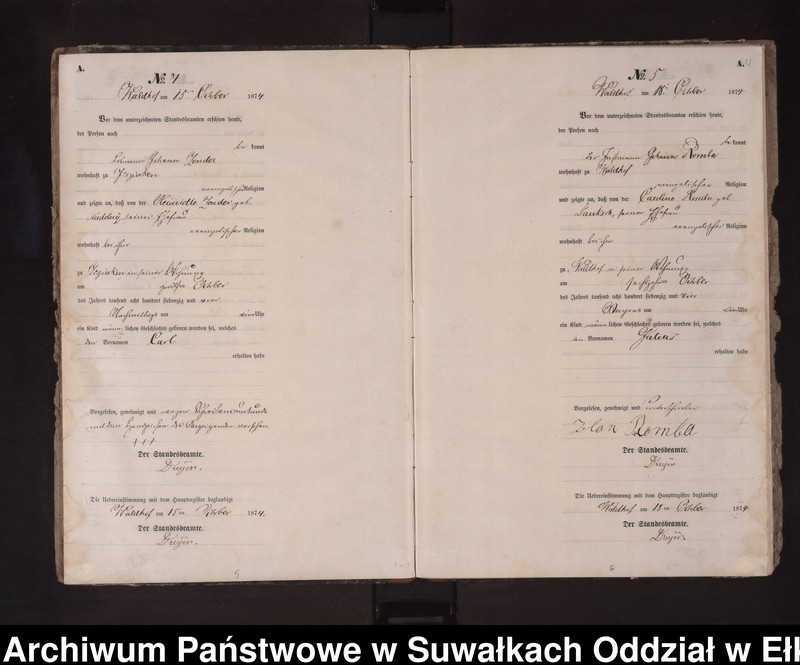 A.
№ 4
Waldhof am 15ten October 1874
Vor dem unterzeichneten Standesbeamten erschien heute,
der Person nach
be kannt
Johann
wohnhaft zu
evangelischer Religion
und zeigte an, daß von der Henriette geb
seiner Ehefrau
evangelischer Religion
wohnhaft bei ihr
zu in seiner Wohnung
am October
des Jahres tausend acht hundert siebenzig und vier
Nachmittags um vier Uhr
ein Kind männ lichen Geschlechts geboren worden sei, welches
den Vornamen Carl
erhalten habe
Vorgelesen, genehmigt und wegen
mit dem Handzeichen des Anzeigenden versehen
+++
Der Standesbeamte.
Die Uebereinstimmung mit dem Hauptregister beglaubigt
Waldhof am 15ten October 1874.
Der Standesbeamte.
5
A.
№ 5
Waldhof am 18ten October 1874
Vor dem unterzeichneten Standesbeamten erschien heute,
der Person nach
be kannt
der Johann Romba
wohnhaft zu Waldhof
evangelischer Religion
und zeigte an, daß von der Caroline Romba geb
seiner Ehefrau
evangelischer Religion
wohnhaft bei ihr
zu Waldhof in seiner Wohnung
am sechszehn October
des Jahres tausend acht hundert siebenzig und vier
Morgens um vier Uhr
ein Kind männ lichen Geschlechts geboren worden sei, welches
den Vornamen Julius
erhalten habe
Vorgelesen, genehmigt und unterschrieben
Romba
Der Standesbeamte.
Die Uebereinstimmung mit dem Hauptregister beglaubigt
Waldhof am 18ten October 1874
Der Standesbeamte.
6
Archiwum Państwowe w Suwałkach Oddział w Ełk